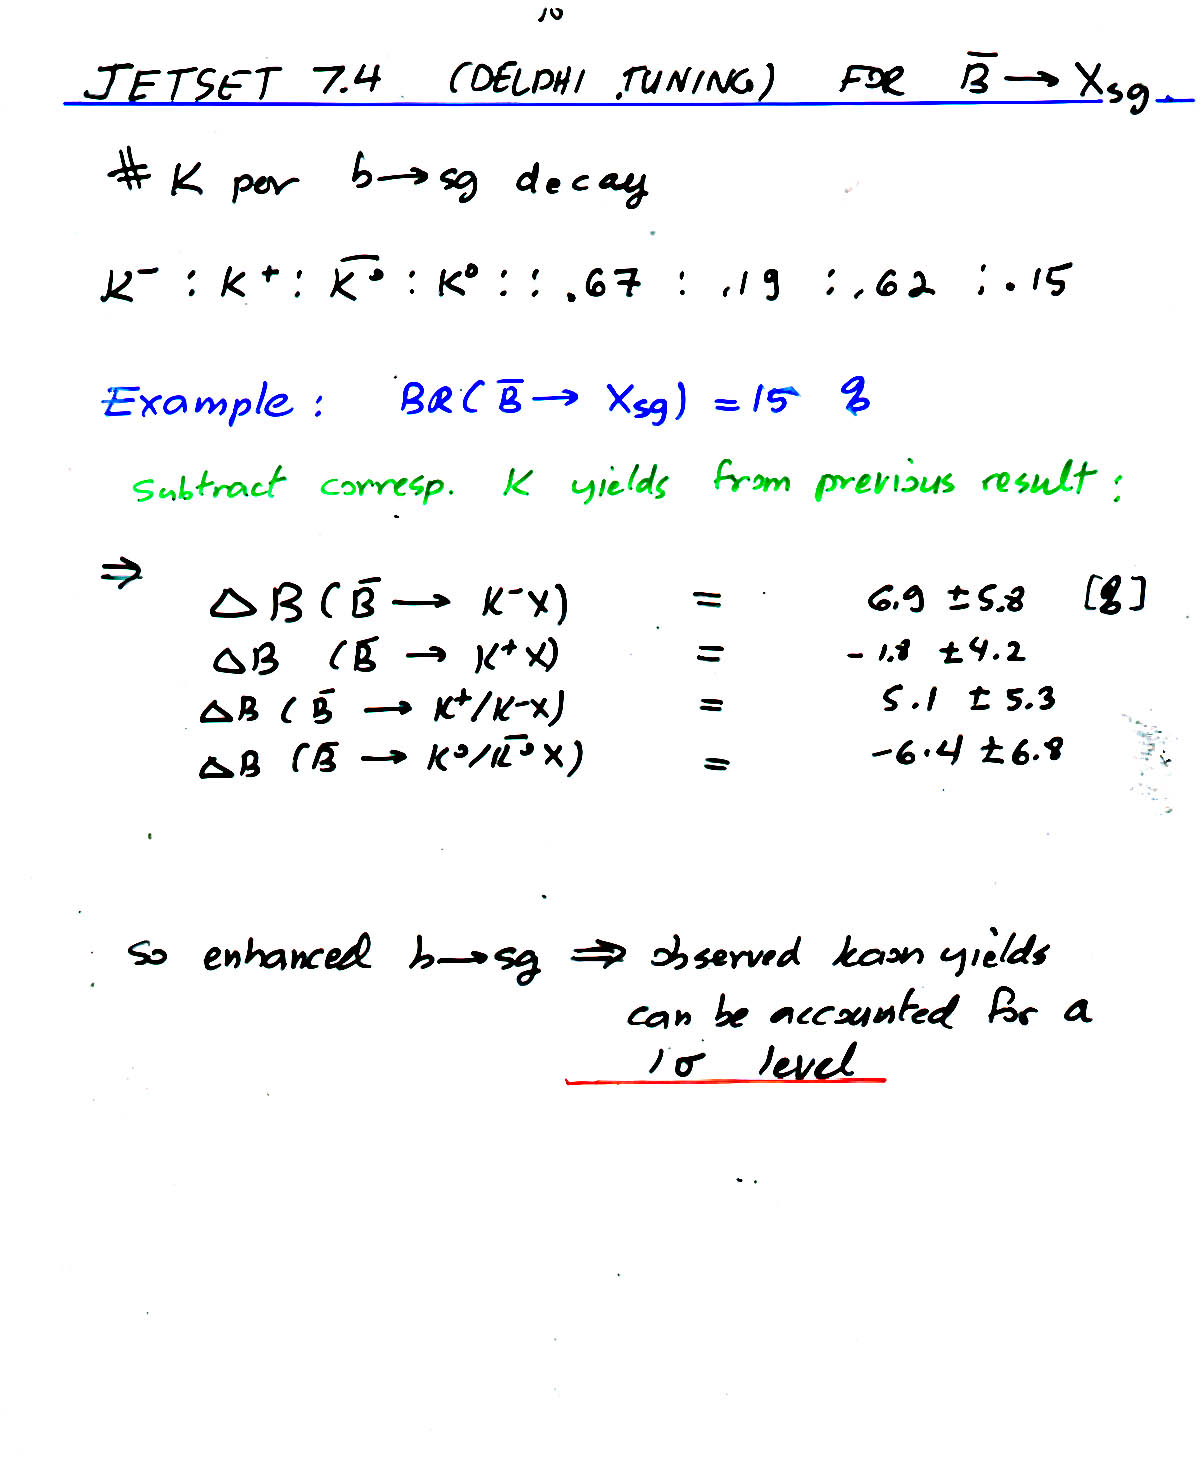 10
JETSET 7.4 (DELPHI TUNING) FOR B̄ → Xsg
# K per b→sg decay
K⁻ : K⁺ : K̄⁰ : K⁰ : : .67 : .19 : .62 : .15
Example: BR(B̄ → Xsg) = 15 %
subtract corresp. K yields from previous result:
⇒
ΔB (B̄ → K⁻X) = 6.9 ± 5.8 [%]
ΔB (B̄ → K⁺X) = -1.8 ± 4.2
ΔB (B̄ → K⁺/K⁻X) = 5.1 ± 5.3
ΔB (B̄ → K⁰/K̄⁰X) = -6.4 ± 6.8
so enhanced b→sg ⇒ observed kaon yields
can be accounted for a
1σ level